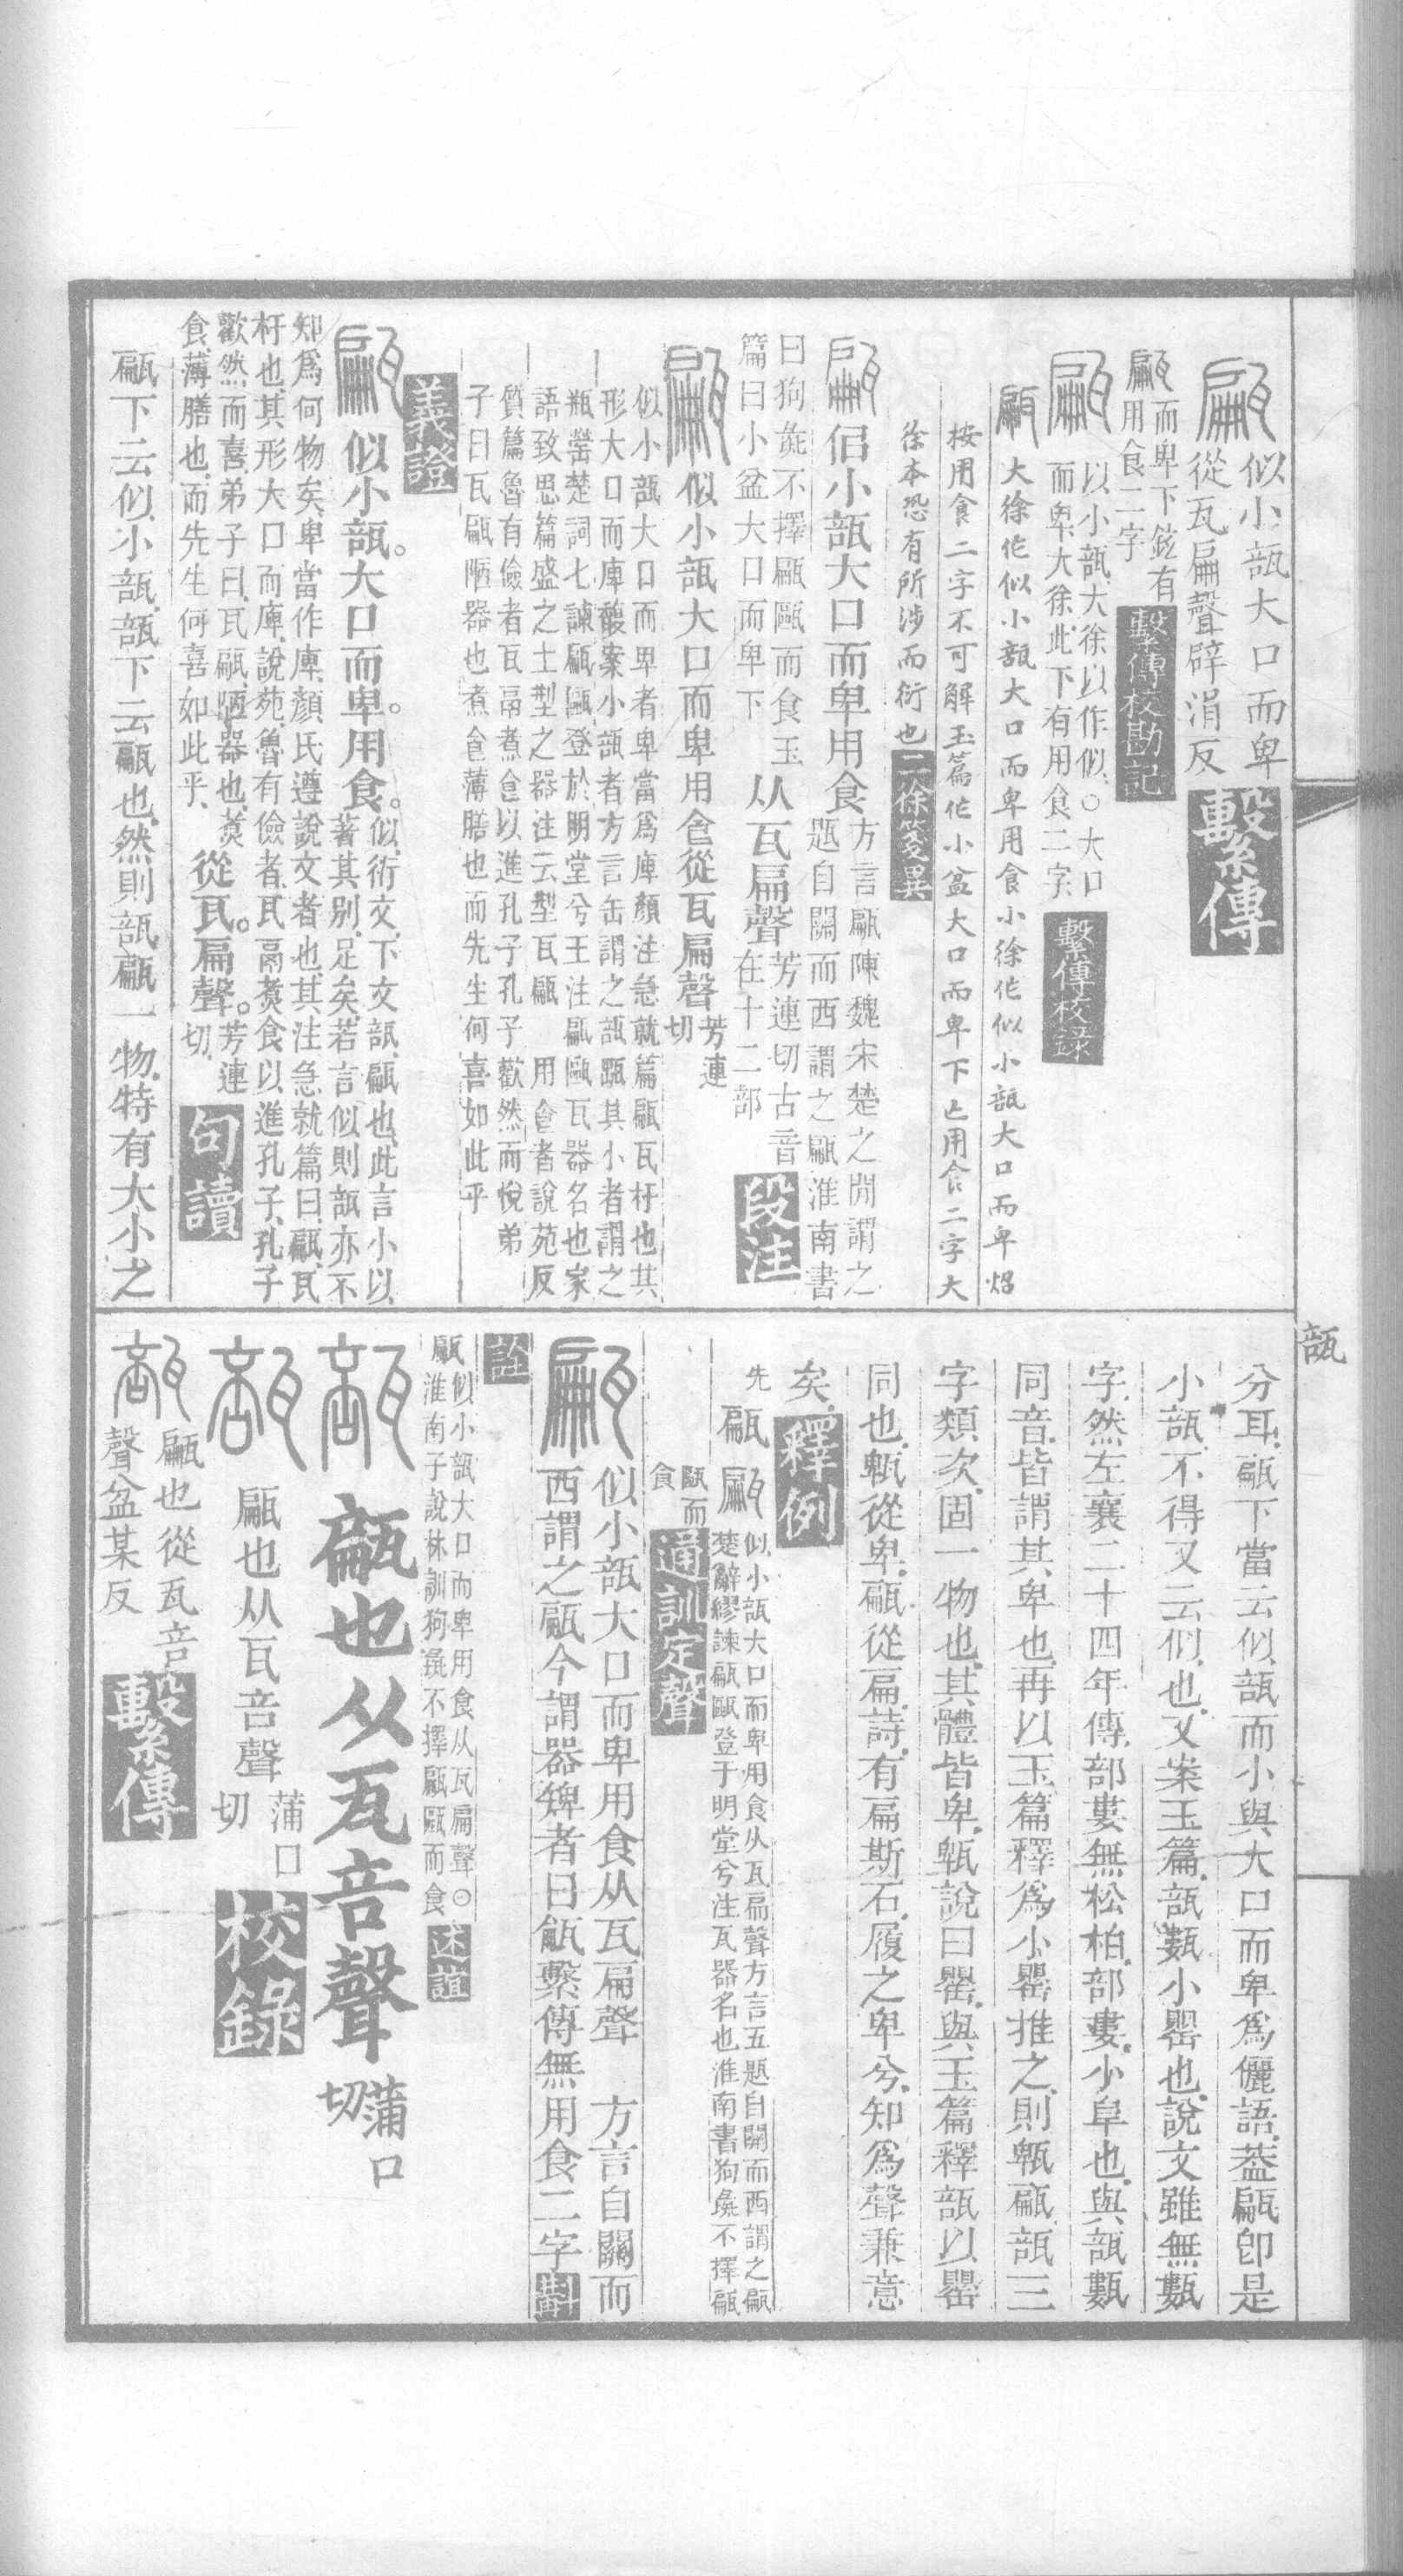 似小瓿大口而卑
從瓦扁聲辟涓反
繫傳
甂而卑下鉉有
用食二字
繫傳校勘記
以小瓿大徐以作似○大口
而卑大徐此下有用食二字
繫傳校錄
大徐作似小瓿大口而卑用食小徐作似小瓿大口而卑炤
按用食二字不可解玉篇作小盆大口而卑下亡用食二字大
徐本恐有所涉而衍也
二徐箋異
佀小瓿大口而卑用食
方言甂陳魏宋楚之閒謂之
題自關而西謂之甂淮南書
曰狗彘不擇甂甌而食玉
篇曰小盆大口而卑下
从瓦扁聲
芳連切古音
在十二部
段注
似小瓿大口而卑用食從瓦扁聲
芳連
切
似小瓿大口而卑者卑當爲庳顏注急就篇甂瓦杅也其
形大口而庳馥案小瓿者方言缶謂之瓿甊其小者謂之
瓶罃楚詞七諫甂甌登於明堂兮王注甂甌瓦器名也家
語致思篇盛之土型之器注云型瓦甂 用食者說苑反
質篇魯有儉者瓦鬲煮食以進孔子孔子歡然而悅弟
子曰瓦甂陋器也煮食薄膳也而先生何喜如此乎
義證
似小瓿。大口而卑。用食。
似、衍文、下文瓿、甂也、此言小以
著其別、足矣、若言似、則瓿亦不
知爲何物矣、卑當作庳、顏氏遵說文者也、其注急就篇曰、甂、瓦
杅也、其形大口而庳、說苑、魯有儉者、瓦鬲煑食、以進孔子、孔子
歡然而喜、弟子曰、瓦甂、陋器也、煑
食、薄膳也、而先生何喜如此乎、
從瓦。扁聲。
芳連
切
句讀
甂下云似小瓿、瓿下云甂也、然則瓿甂一物、特有大小之
分耳、甂下當云似瓿而小、與大口而卑爲儷語、葢甂卽是
小瓿、不得又云似也、又案玉篇、瓿甊小罌也、說文雖無甊
字、然左襄二十四年傳、部婁無松柏、部婁、小阜也、與瓿甊
同音、皆謂其卑也、再以玉篇釋爲小罌推之、則甈甂瓿三
字類次、固一物也、其體皆卑、甈說曰罌、與玉篇釋瓿以罌
同也、甈從卑、甂從扁、詩、有扁斯石、履之卑兮、知爲聲兼意
矣、
釋例
先
甂
似小瓿大口而卑用食从瓦扁聲方言五題自關而西謂之甂
楚辭繆諫甂甌登于明堂兮注瓦器名也淮南書狗彘不擇甂
甌而
食
通訓定聲
似小瓿大口而卑用食从瓦扁聲 方言自關而
西謂之甂今謂器矲者曰甂繫傳無用食二字
斠
詮
甂似小瓿大口而卑用食从瓦扁聲○
淮南子說林訓狗彘不擇甂甌而食
述誼
瓿
甂也从瓦咅聲
蒲口
切
甂也从瓦咅聲
蒲口
切
校錄
甂也從瓦咅
聲盆某反
繫傳